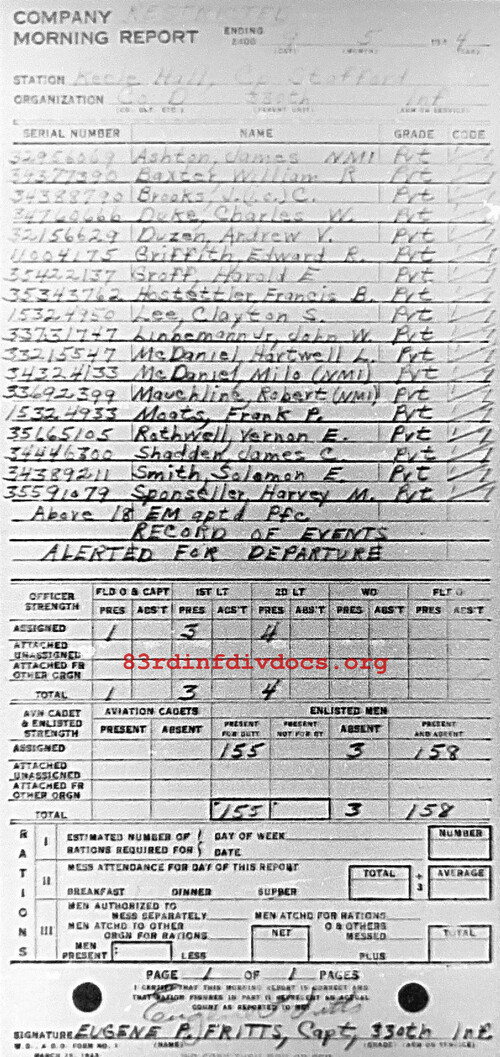 COMPANY RESTRICTED
MORNING REPORT ENDING 2400 9 5 1944
(DAY) (MONTH) (YEAR)
STATION Keele Hall, Cp Stafford
ORGANIZATION Co D 330th Inf
(CO, BAT, ETC.) (PARENT UNIT) (ARM OR SERVICE)
SERIAL NUMBER NAME GRADE CODE
32956069 Ashton, James NMI Pvt
34377390 Baxter, William R Pvt
34388790 Brooks, J.(i.o.) C. Pvt
34760666 Duke, Charles W. Pvt
32156629 Duzen, Andrew V. Pvt
11004175 Griffith, Edward R. Pvt
35422137 Groff, Harold E Pvt
35343762 Hostettler, Francis B. Pvt
15324950 Lee, Clayton S. Pvt
33731747 Linnemann Jr, John W. Pvt
33215547 McDaniel, Hartwell L. Pvt
34324133 McDaniel, Milo (NMI) Pvt
33692399 Mauchline, Robert (NMI) Pvt
15324933 Moats, Frank P. Pvt
35665105 Rothwell, Vernon E. Pvt
34446300 Shadden, James C. Pvt
34389211 Smith, Solomon E. Pvt
35591079 Sponseller, Harvey M. Pvt
Above 18 EM aptd Pfc
RECORD OF EVENTS
ALERTED FOR DEPARTURE
OFFICER STRENGTH FLD O & CAPT 1ST LT 2D LT WO FLT O
PRES ABS'T PRES ABS'T PRES ABS'T PRES ABS'T PRES ABS'T
ASSIGNED 1 3 4
ATTACHED UNASSIGNED
ATTACHED FR OTHER ORGN
83rdinfdivdocs.org
TOTAL 1 3 4
AVN CADET & ENLISTED STRENGTH AVIATION CADETS ENLISTED MEN
PRESENT ABSENT PRESENT FOR DUTY PRESENT NOT FOR DY ABSENT PRESENT AND ABSENT
ASSIGNED 155 3 158
ATTACHED UNASSIGNED
ATTACHED FR OTHER ORGN
TOTAL 155 3 158
RATIONS
I ESTIMATED NUMBER OF RATIONS REQUIRED FOR DAY OF WEEK DATE NUMBER
II MESS ATTENDANCE FOR DAY OF THIS REPORT TOTAL ÷ 3 AVERAGE
BREAKFAST DINNER SUPPER
III MEN AUTHORIZED TO MESS SEPARATELY MEN ATCHD FOR RATIONS
MEN ATCHD TO OTHER ORGN FOR RATIONS NET O & OTHERS MESSED TOTAL
MEN PRESENT LESS PLUS
PAGE 1 OF 1 PAGES
I CERTIFY THAT THIS MORNING REPORT IS CORRECT AND
THAT RATION FIGURES IN PART II REPRESENT AN ACTUAL
COUNT AS REPORTED TO ME
SIGNATURE EUGENE P. FRITTS, Capt, 330th Inf.
W.D., A.G.O. FORM NO. 1 (NAME) (GRADE) (ARM OR SERVICE)